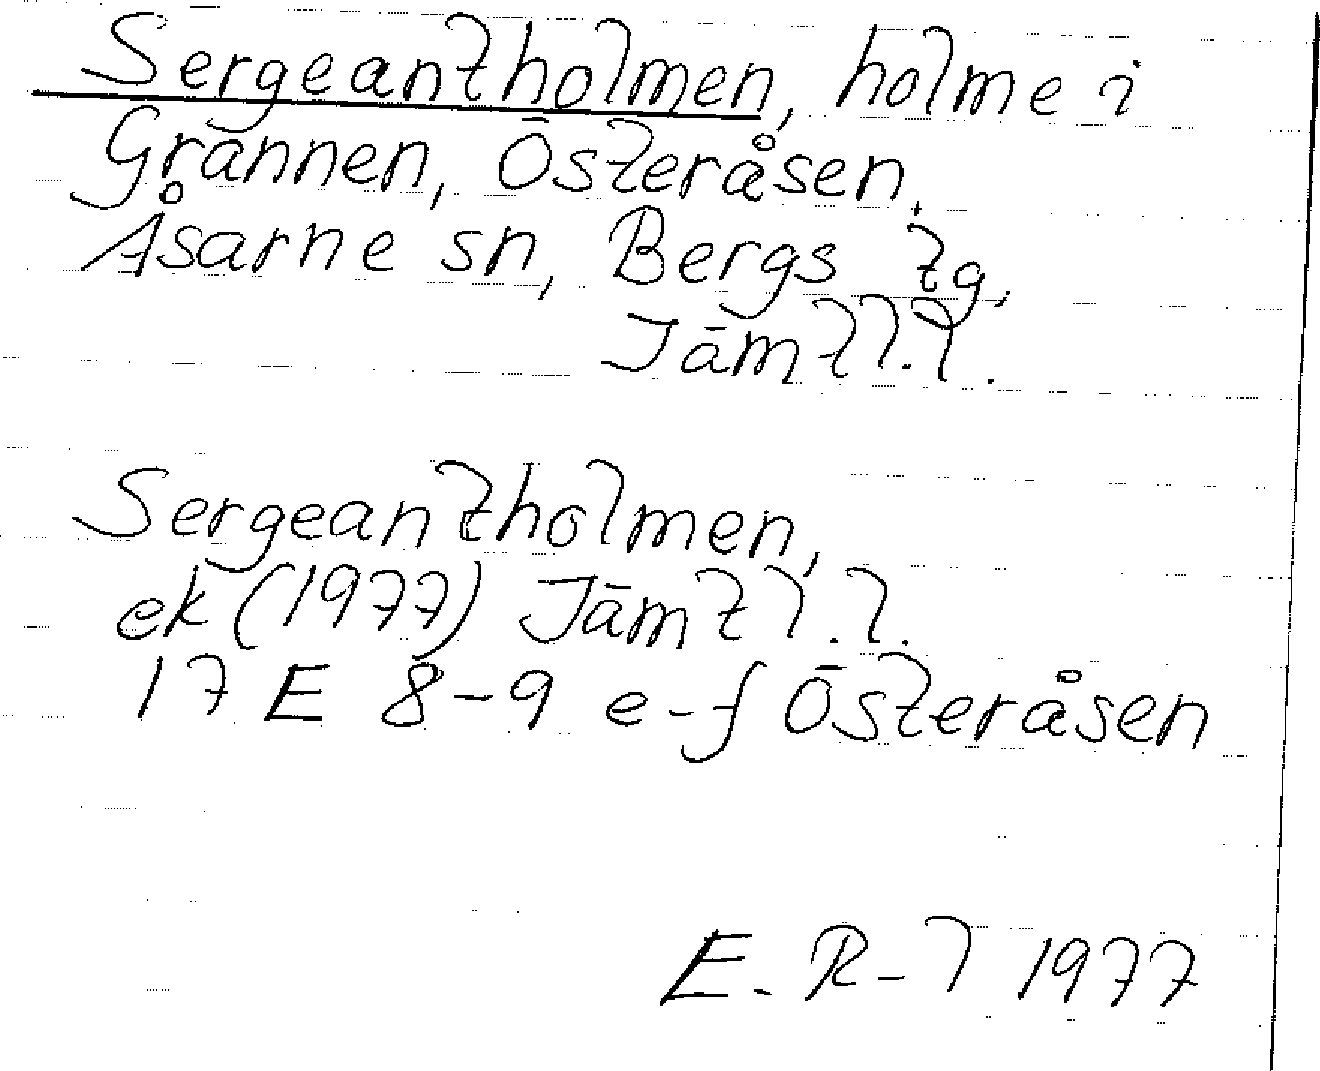 Sergeantholmen, holme i
Grännen, Österåsen,
Åsarne sn, Bergs tg,
Jämtl.l.
Sergeantholmen,
ek (1977) Jämtl.l.
17 E 8-9 e-f Österåsen
E. R-l 1977